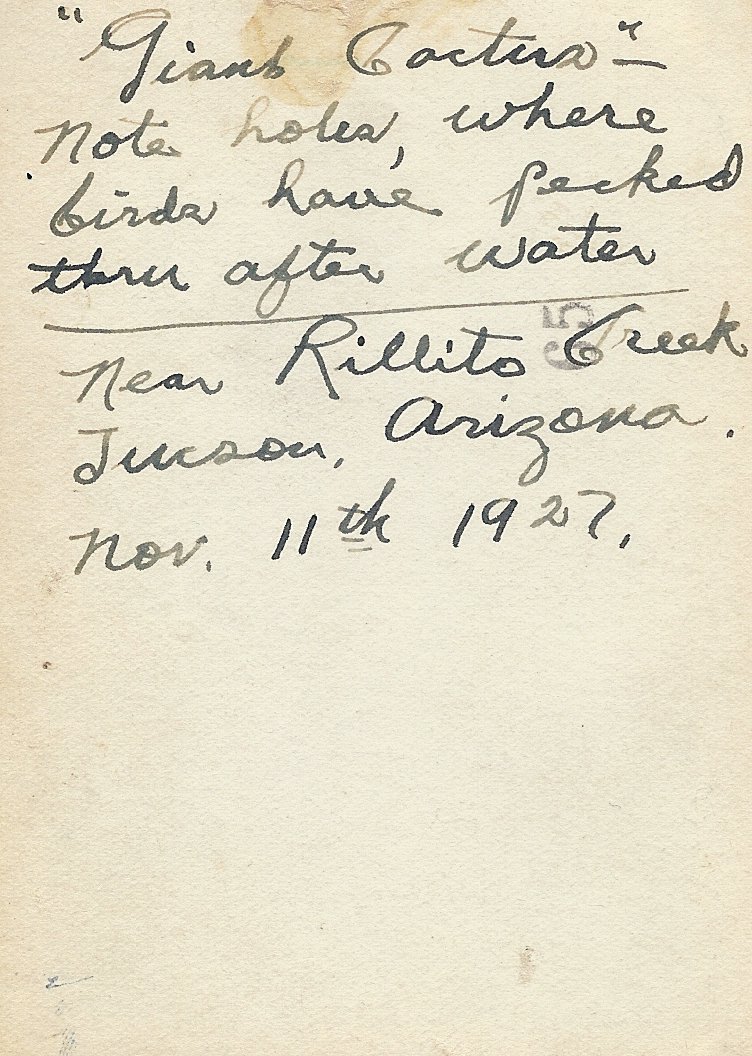 "Giant Cactus" —
Note holes, where
birds have pecked
thru after water
Near Rillito Creek
Tucson, Arizona.
Nov. 11th 1927.
65